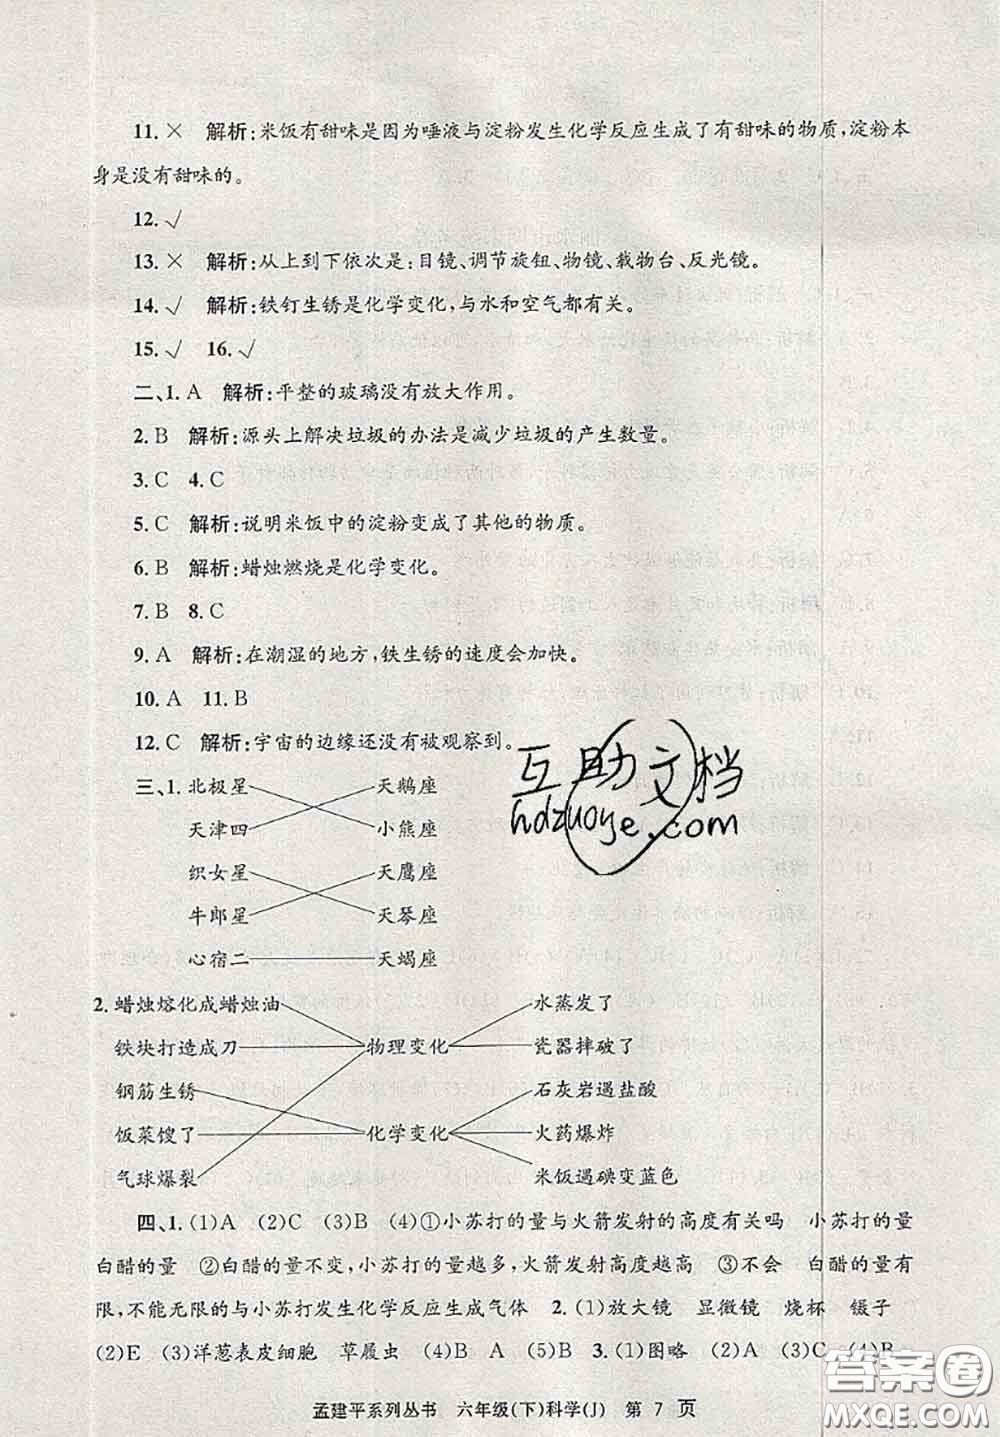 11. × 解析:米饭有甜味是因为唾液与淀粉发生化学反应生成了有甜味的物质,淀粉本
身是没有甜味的。
12. √
13. × 解析:从上到下依次是:目镜、调节旋钮、物镜、载物台、反光镜。
14. √ 解析:铁钉生锈是化学变化,与水和空气都有关。
15. √ 16. √
二、1. A 解析:平整的玻璃没有放大作用。
2. B 解析:源头上解决垃圾的办法是减少垃圾的产生数量。
3. C 4. C
5. C 解析:说明米饭中的淀粉变成了其他的物质。
6. B 解析:蜡烛燃烧是化学变化。
7. B 8. C
9. A 解析:在潮湿的地方,铁生锈的速度会加快。
10. A 11. B
12. C 解析:宇宙的边缘还没有被观察到。
互助文档
hdzuoye.com
三、1. 北极星 天鹅座
天津四 小熊座
织女星 天鹰座
牛郎星 天琴座
心宿二 天蝎座
2. 蜡烛熔化成蜡烛油 水蒸发了
铁块打造成刀 物理变化 瓷器摔破了
钢筋生锈 石灰岩遇盐酸
饭菜馊了 化学变化 火药爆炸
气球爆裂 米饭遇碘变蓝色
四、1. (1)A (2)C (3)B (4)①小苏打的量与火箭发射的高度有关吗 小苏打的量
白醋的量 ②白醋的量不变,小苏打的量越多,火箭发射高度越高 ③不会 白醋的量有
限,不能无限的与小苏打发生化学反应生成气体 2. (1)放大镜 显微镜 烧杯 镊子
(2)E (3)洋葱表皮细胞 草履虫 (4)B A (5)B 3. (1)图略 (2)A (3)C (4)B
孟建平系列丛书 六年级(下)科学(J) 第 7 页
答案圈
MXQE.COM